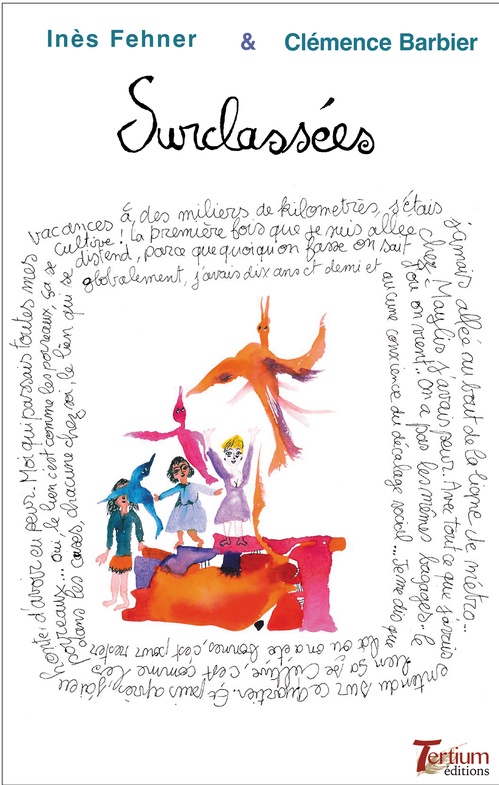 Inès Fehner & Clémence Barbier
Surclassées
globalement, j'avais dix ans et demi et
aucune conscience du décalage social... Je me dis que
là où on a été bonnes, c'est pour rester
dans les cases, chacune chez soi, le lien qui se
distend, parce que quoiqu'on fasse on sait
d'où on vient.. On a pas les mêmes bagages.. le
lien ça se cultive, c'est comme les
poireaux... oui, le lien c'est comme les poireaux, ça se
cultive ! La première fois que je suis allée
chez Maylis j'avais peur.. Avec tout ce que j'avais
entendu sur ce quartier. Et puis après, j'ai eu
honte d'avoir eu peur.. Moi qui passais toutes mes
vacances à des miliers de kilometrès, j'étais
jamais allée au bout de la ligne de métro...
Tertium
éditions